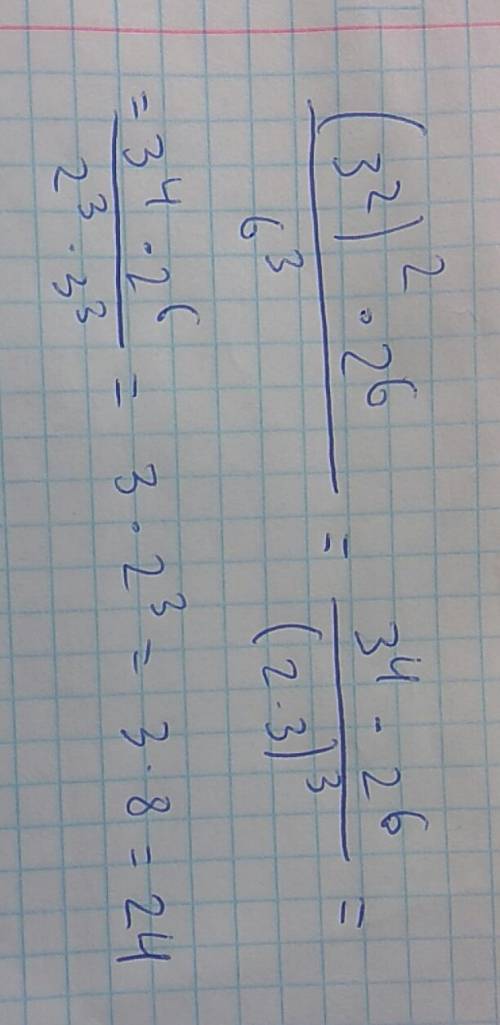 (3²)² · 2⁶ / 6³ = 3⁴ · 2⁶ / (2·3)³ =
= 3⁴ · 2⁶ / 2³ · 3³ = 3 · 2³ = 3 · 8 = 24